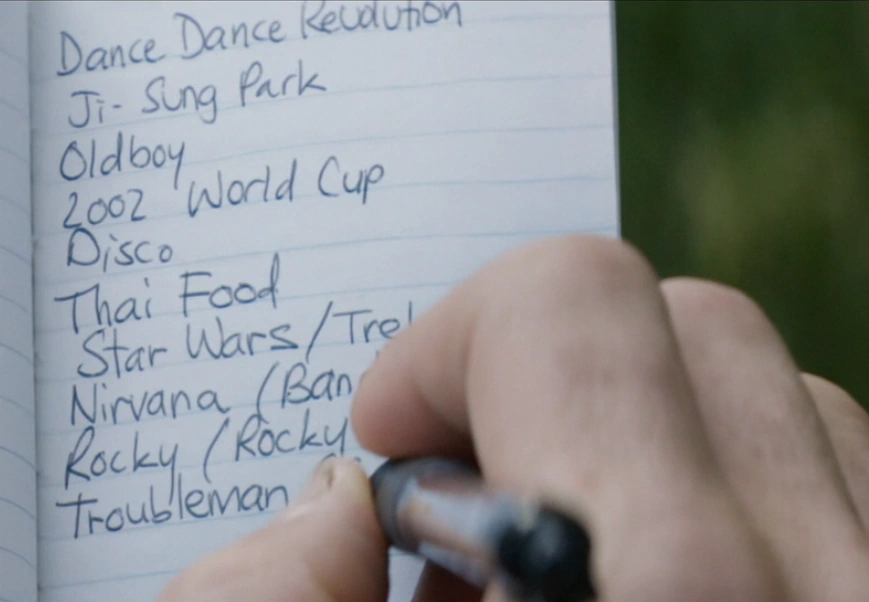 Dance Dance Revolution
Ji-Sung Park
Oldboy
2002 World Cup
Disco
Thai Food
Star Wars/Tre
Nirvana (Ban
Rocky (Rocky
Troubleman